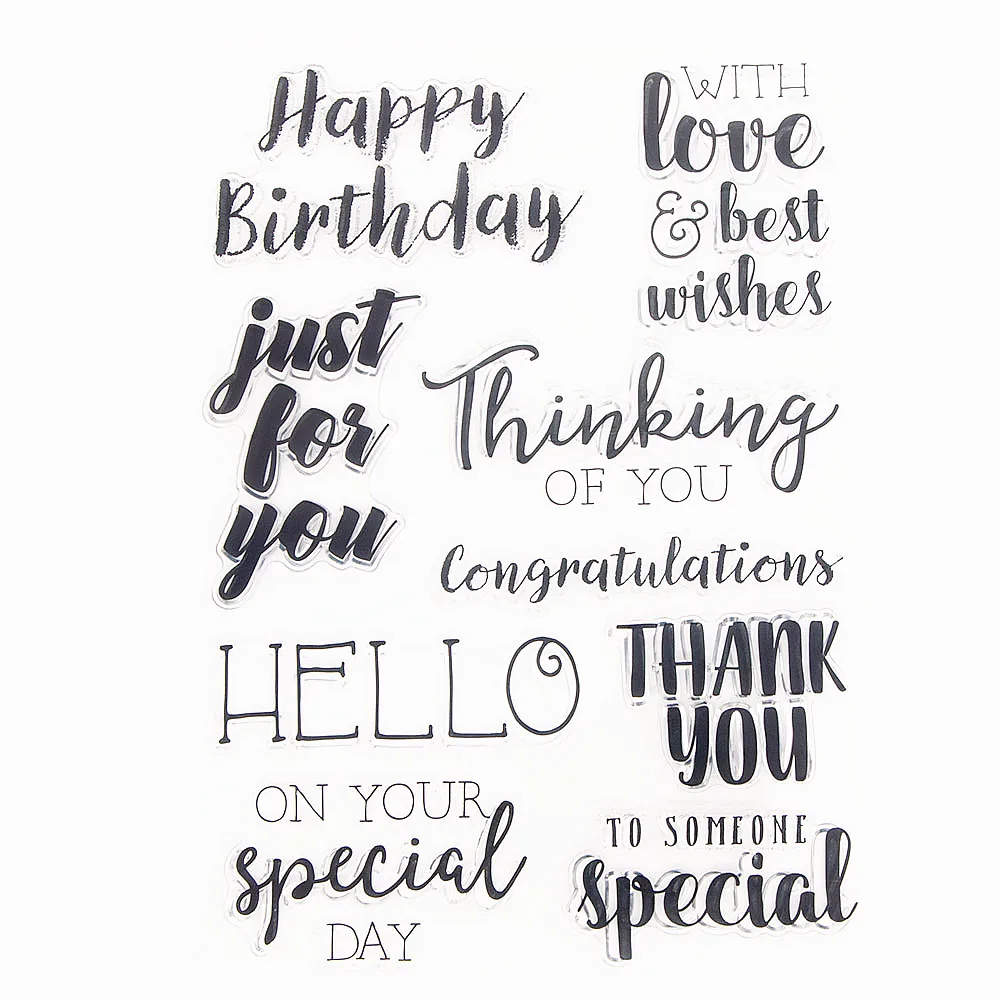 Happy
Birthday
WITH
love
& best
wishes
just
for
you
Thinking
OF YOU
Congratulations
HELLO
THANK
YOU
ON YOUR
special
DAY
TO SOMEONE
special